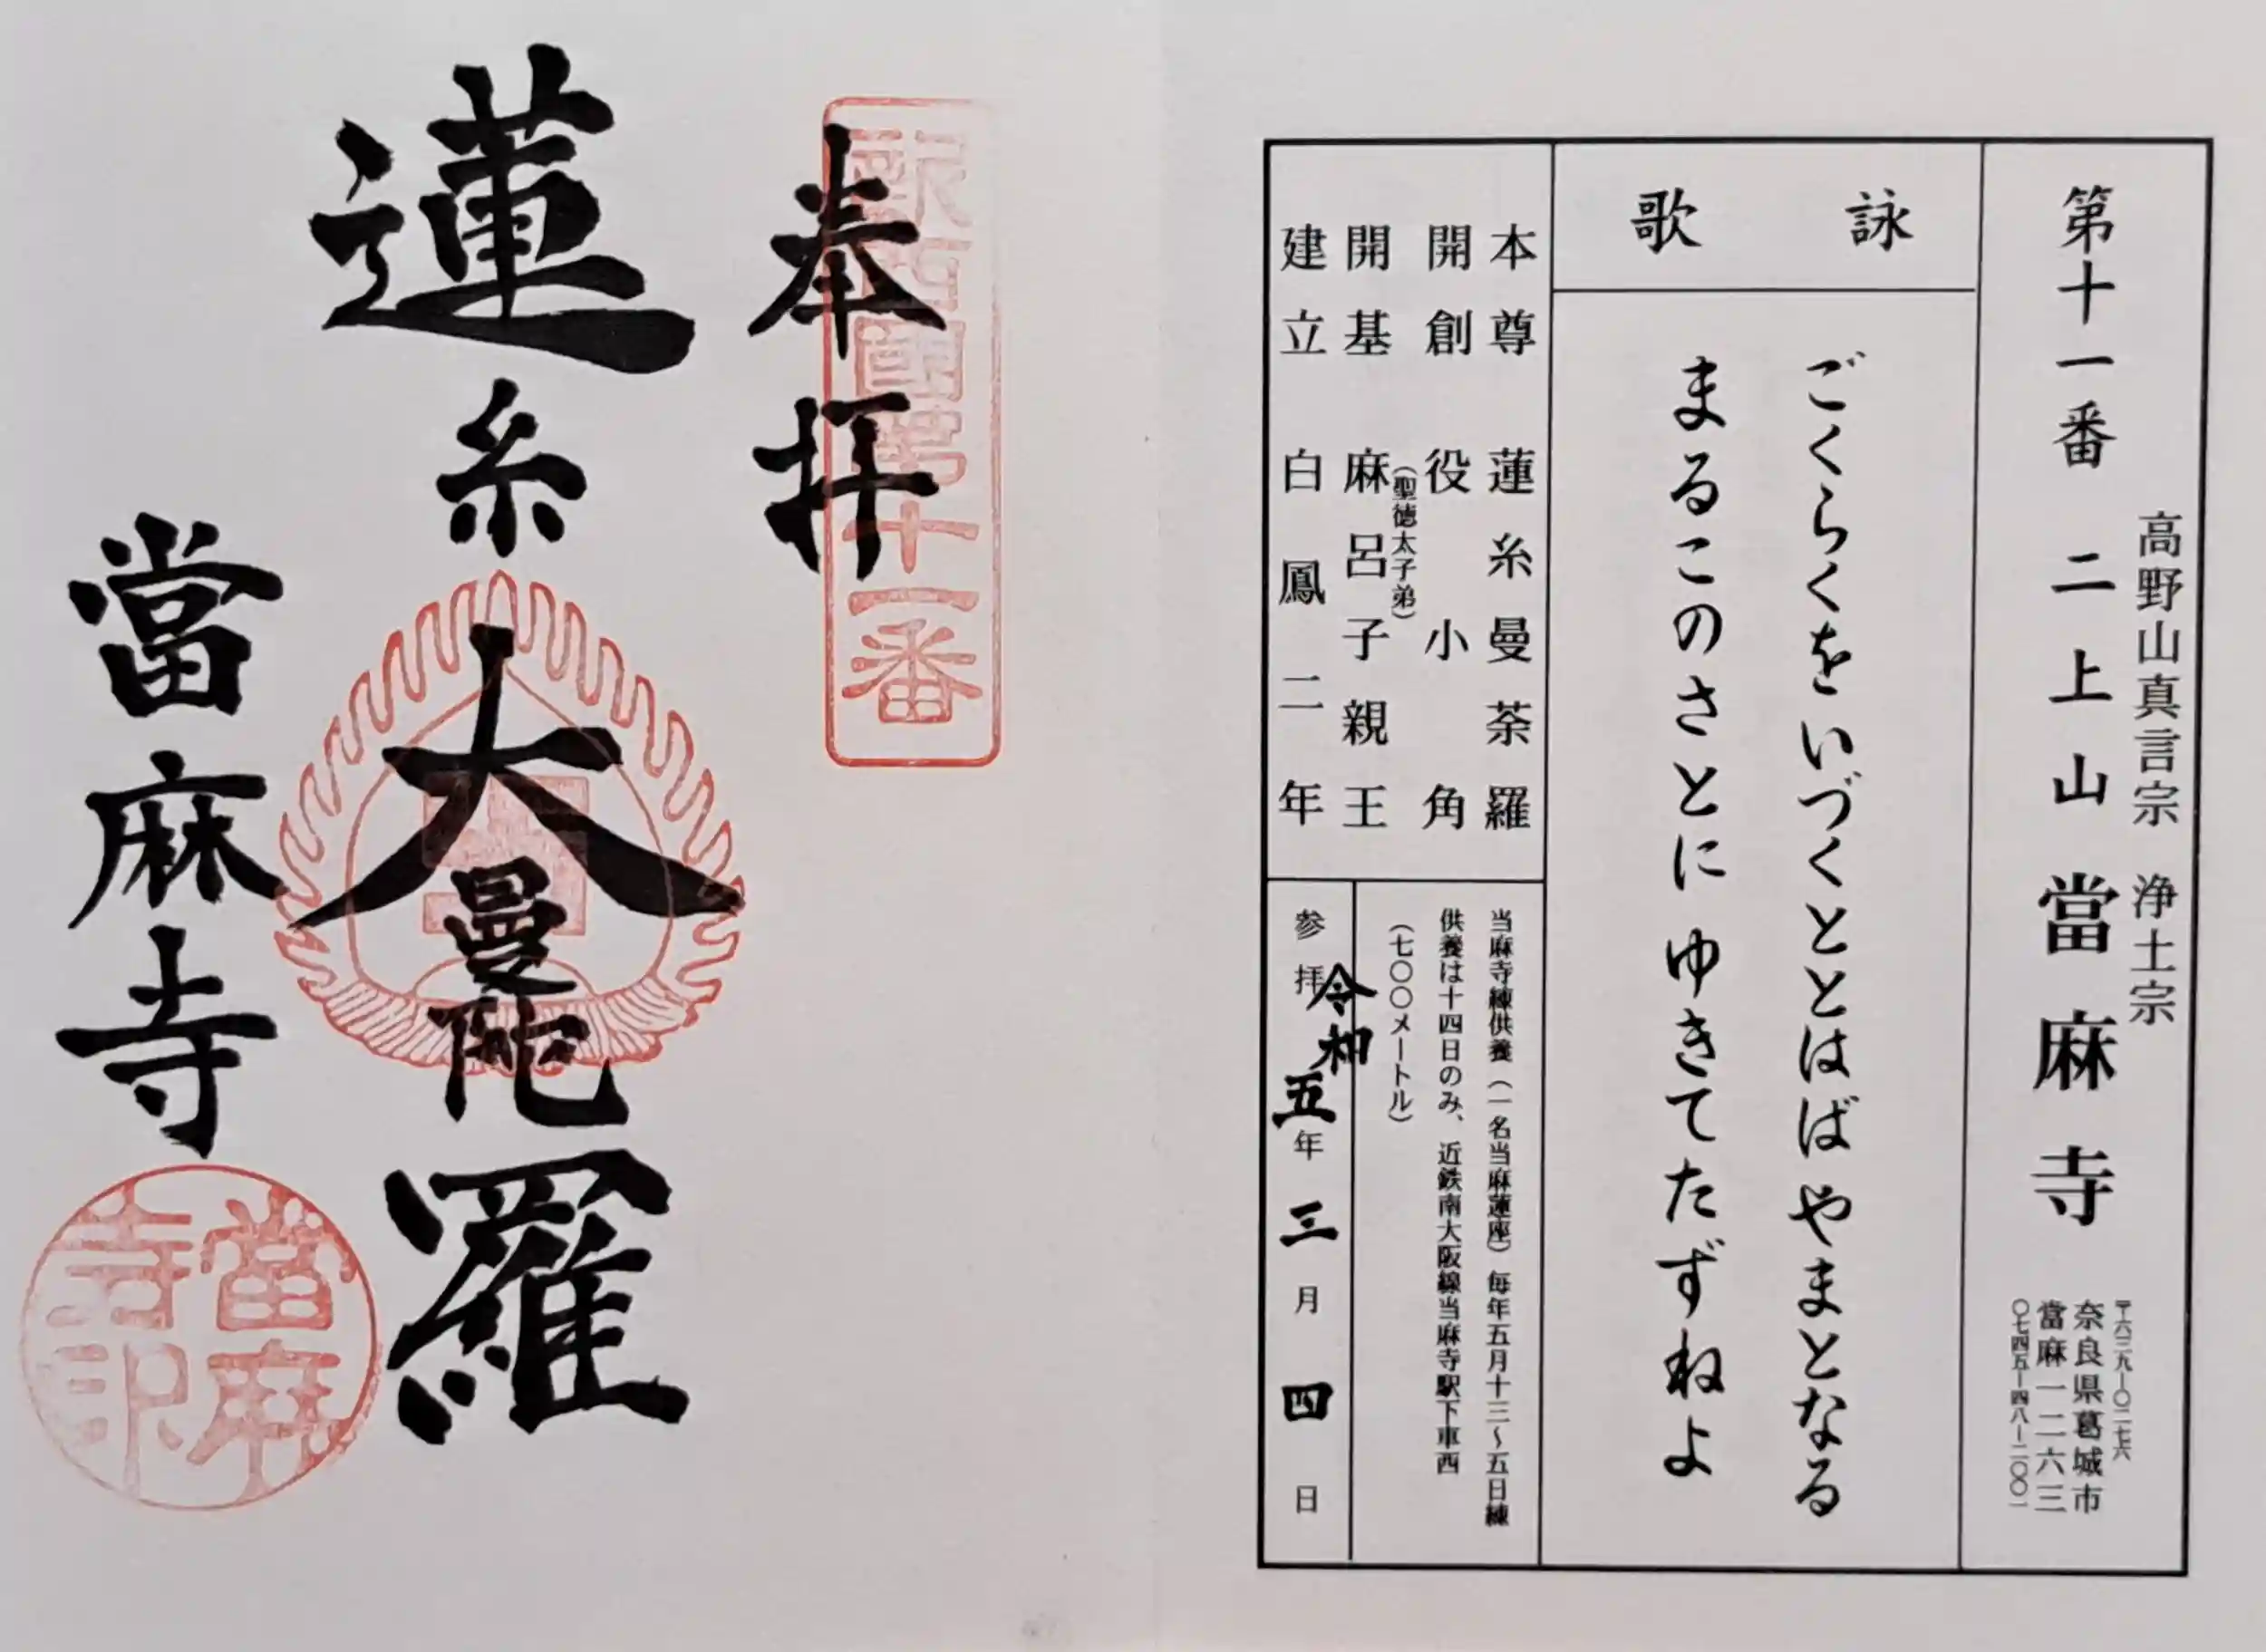 第十一番 二上山 當麻寺
高野山真言宗 浄土宗
〒六三九―〇二七六
奈良県葛城市
當麻一二六三
〇七四五―四八―二〇〇一
詠歌
ごくらくをいづくととはば やまとなる
まるこのさとに ゆきてたずねよ
本尊 蓮糸曼荼羅
開創 役小角
(聖徳太子弟)
開基 麻呂子親王
建立 白鳳二年
当麻寺練供養(一名当麻蓮座)毎年五月十三〜五日練
供養は十四日のみ、近鉄南大阪線当麻寺駅下車西
(七〇〇メートル)
参拝 令和五年三月四日
奉拝
番一十第國西
蓮糸大曼陀羅
當麻寺
當麻
寺印